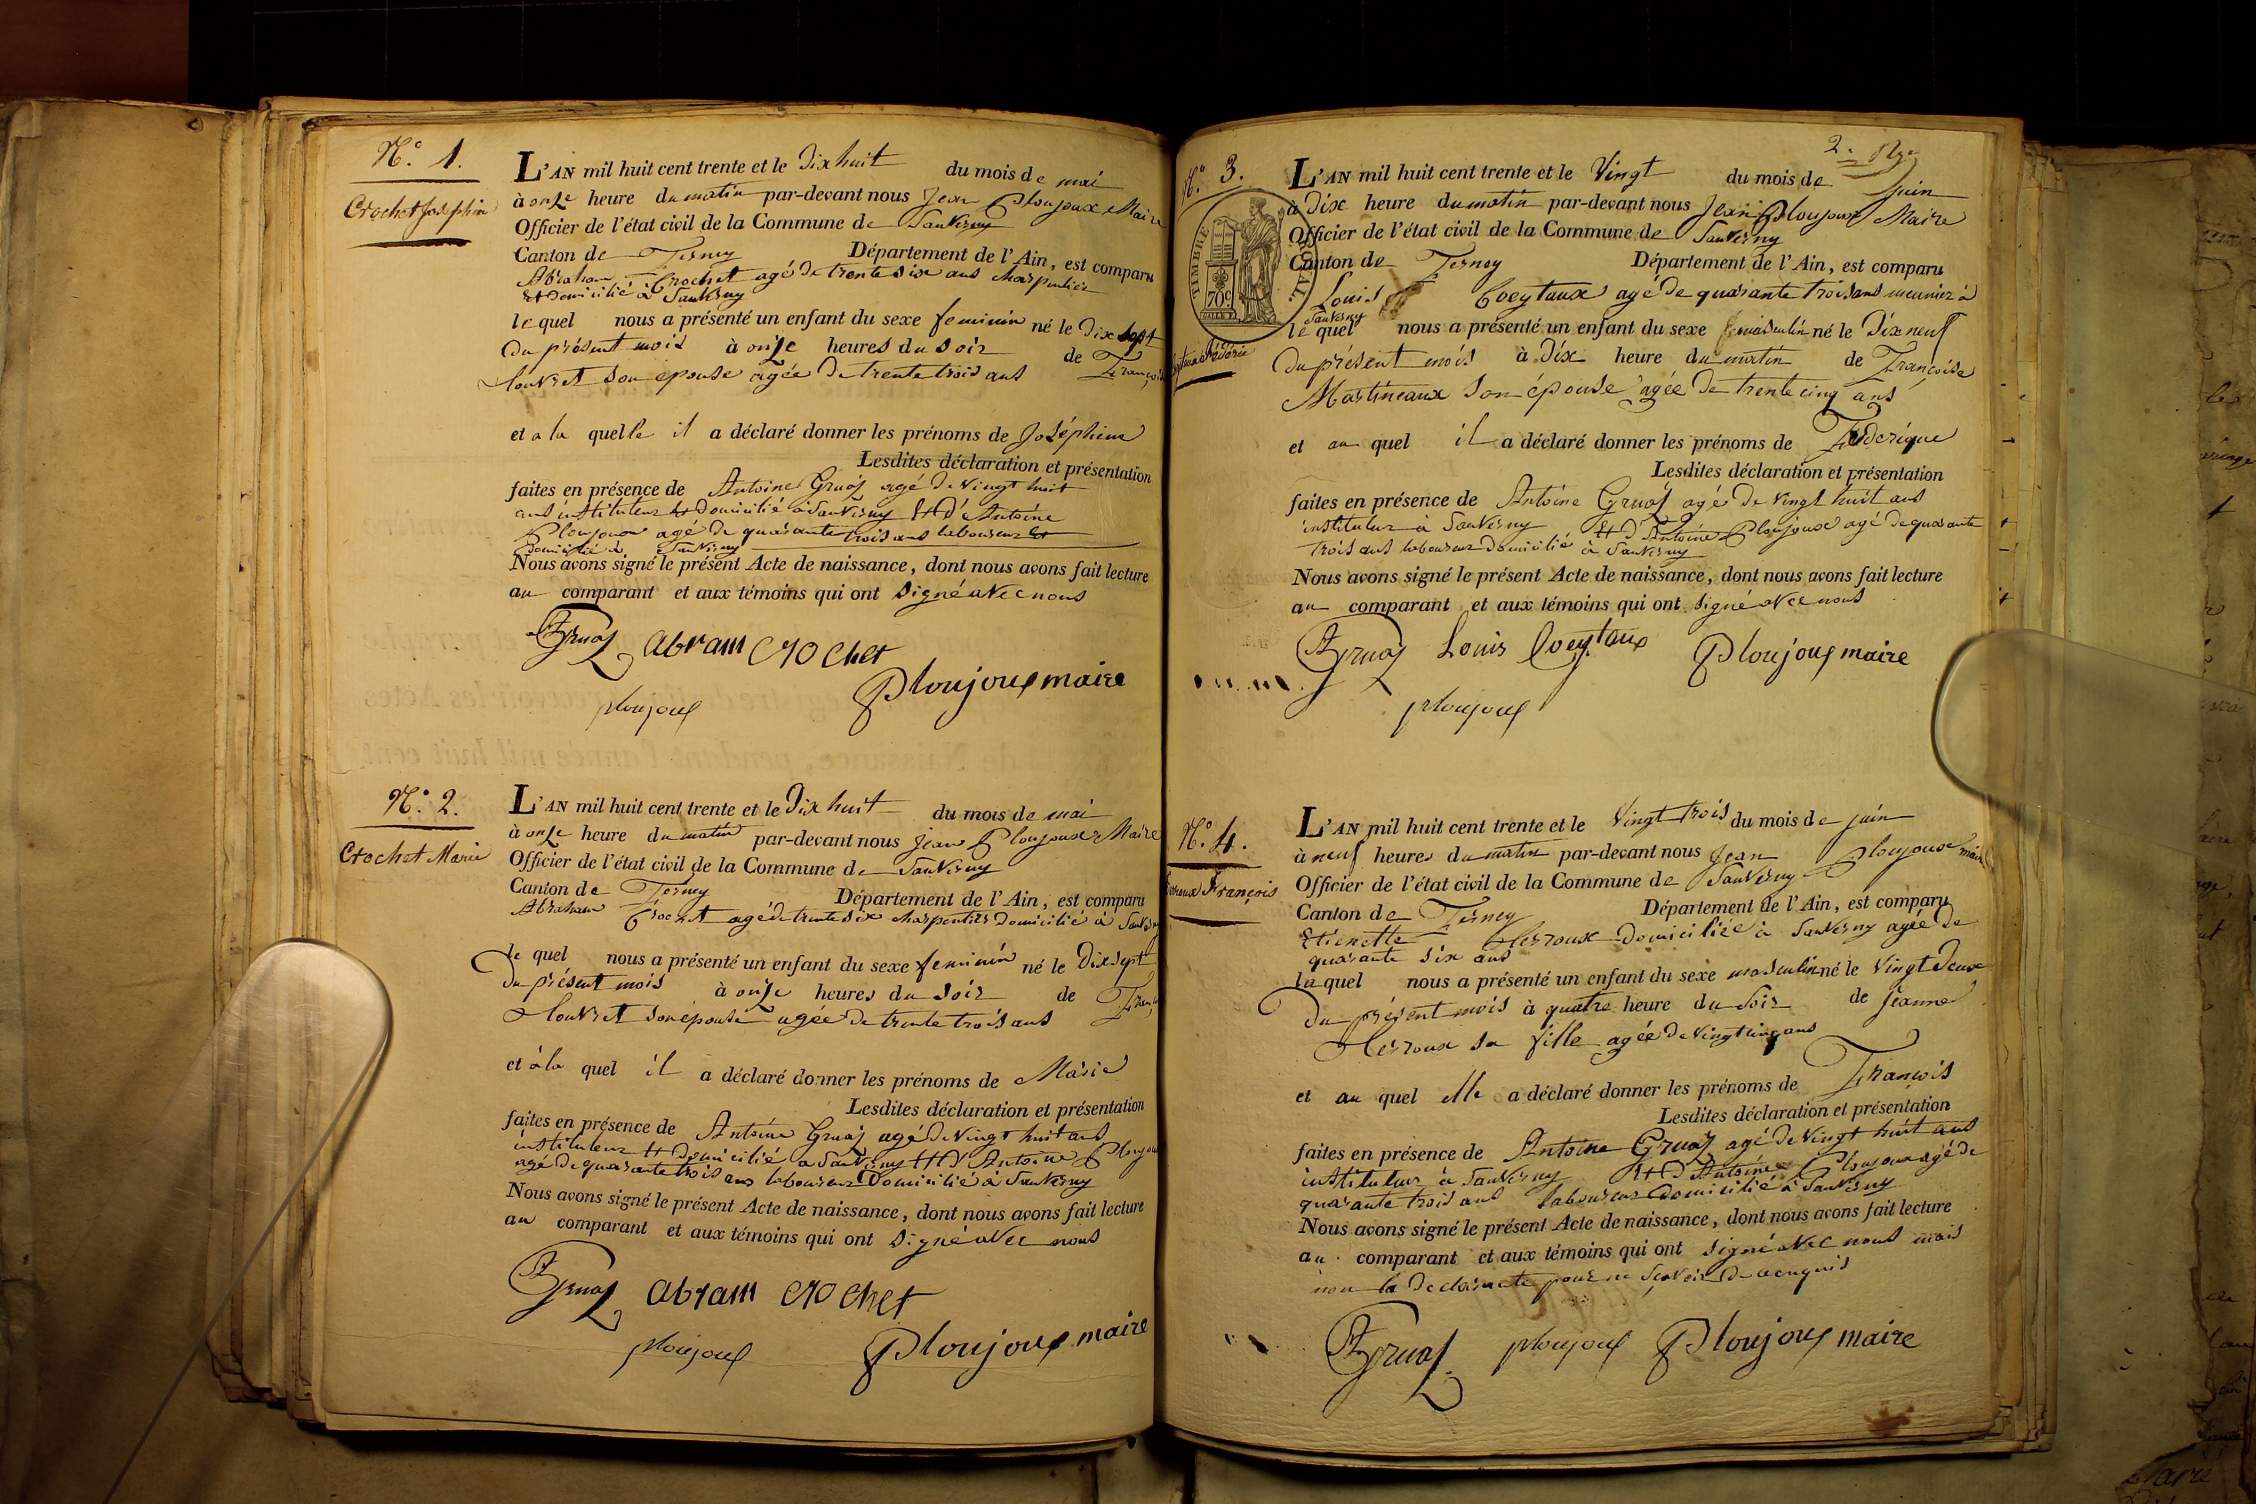 N.° 1.
Crochet Joséphine
L'AN mil huit cent trente et le Dix huit du mois de mai
à onze heure du matin par-devant nous Jean Ploujoux Maire
Officier de l'état civil de la Commune de Sauverny
Canton de Ferney Département de l'Ain, est comparu
Abraham Crochet agé de trente six ans charpentier
et domicilié à Sauverny
le quel nous a présenté un enfant du sexe feminin né le Dix sept
du présent mois à onze heures du soir de Françoise
Louvret son épouse agée de trente trois ans
et a la quelle il a déclaré donner les prénoms de Joséphine
Lesdites déclaration et présentation
faites en présence de Antoine Gruaz agé de vingt huit
ans instituteur et domicilié à Sauverny et d'Antoine
Ploujoux agé de quarante trois ans laboureur et
domicilié à Sauverny
Nous avons signé le présent Acte de naissance, dont nous avons fait lecture
au comparant et aux témoins qui ont signé avec nous
AGruaz abram crochet
Ploujoux maire
ploujoux
N.° 2.
Crochet Marie
L'AN mil huit cent trente et le Dix huit du mois de mai
à onze heure du matin par-devant nous Jean Ploujoux Maire
Officier de l'état civil de la Commune de Sauverny
Canton de Ferney Département de l'Ain, est comparu
Abraham Crochet agé de trente six charpentier domicilié à Sauverny
le quel nous a présenté un enfant du sexe feminin né le Dix sept
du présent mois à onze heures du soir de Franç
Louvret son épouse agée de trente trois ans
et à la quel il a déclaré donner les prénoms de Marie
Lesdites déclaration et présentation
faites en présence de Antoine Gruaz agé de vingt huit ans
instituteur et domicilié a Sauverny et d'Antoine Ploujoux
agé de quarante trois ans laboureur domicilié à Sauverny
Nous avons signé le présent Acte de naissance, dont nous avons fait lecture
au comparant et aux témoins qui ont signé avec nous
AGruaz abram crochet
ploujoux Ploujoux maire
N.° 3.
TIMBRE ROYAL
70 c
Frédéric
L'AN mil huit cent trente et le Vingt du mois de juin
à Dix heure du matin par-devant nous Jean Ploujoux Maire
Officier de l'état civil de la Commune de Sauverny
Canton de Ferney Département de l'Ain, est comparu
Louis Coeytaux agé de quarante trois ans meunier à
Sauverny
le quel nous a présenté un enfant du sexe masculin né le Dix neuf
du présent mois à Dix heure du matin de Françoise
Martineaux son épouse agée de trente cinq ans
et au quel il a déclaré donner les prénoms de Féderique
Lesdites déclaration et présentation
faites en présence de Antoine Gruaz agé de vingt huit ans
instituteur a Sauverny et d'Antoine Ploujoux agé de quarante
trois ans laboureur domicilié à Sauverny
Nous avons signé le présent Acte de naissance, dont nous avons fait lecture
au comparant et aux témoins qui ont signé avec nous
AGruaz Louis Coeytaux Ploujoux maire
ploujoux
N.° 4.
François
L'AN mil huit cent trente et le Vingt trois du mois de juin
à neuf heures du matin par-devant nous Jean Ploujoux maire
Officier de l'état civil de la Commune de Sauverny
Canton de Ferney Département de l'Ain, est comparu
Etienette Herroux domiciliée à Sauverny agée de
quarante six ans
la quel nous a présenté un enfant du sexe masculin né le vingt deux
Du présent mois à quatre heure du soir de Jeanne
Herroux sa fille agée de vingt cinq ans
et au quel elle a déclaré donner les prénoms de François
Lesdites déclaration et présentation
faites en présence de Antoine Gruaz agé de vingt huit ans
instituteur à Sauverny et d'Antoine Ploujoux agé de
quarante trois ans laboureur domicilié à Sauverny
Nous avons signé le présent Acte de naissance, dont nous avons fait lecture
au comparant et aux témoins qui ont signé avec nous mais
non la declarante pour ne sçavoir de ce enquis
AGruaz ploujoux Ploujoux maire